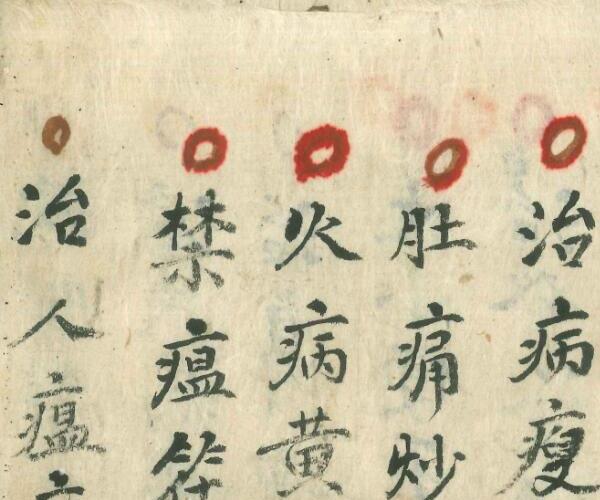 治病瘦
肚痛炒
火病黄
禁瘟符
治人瘟